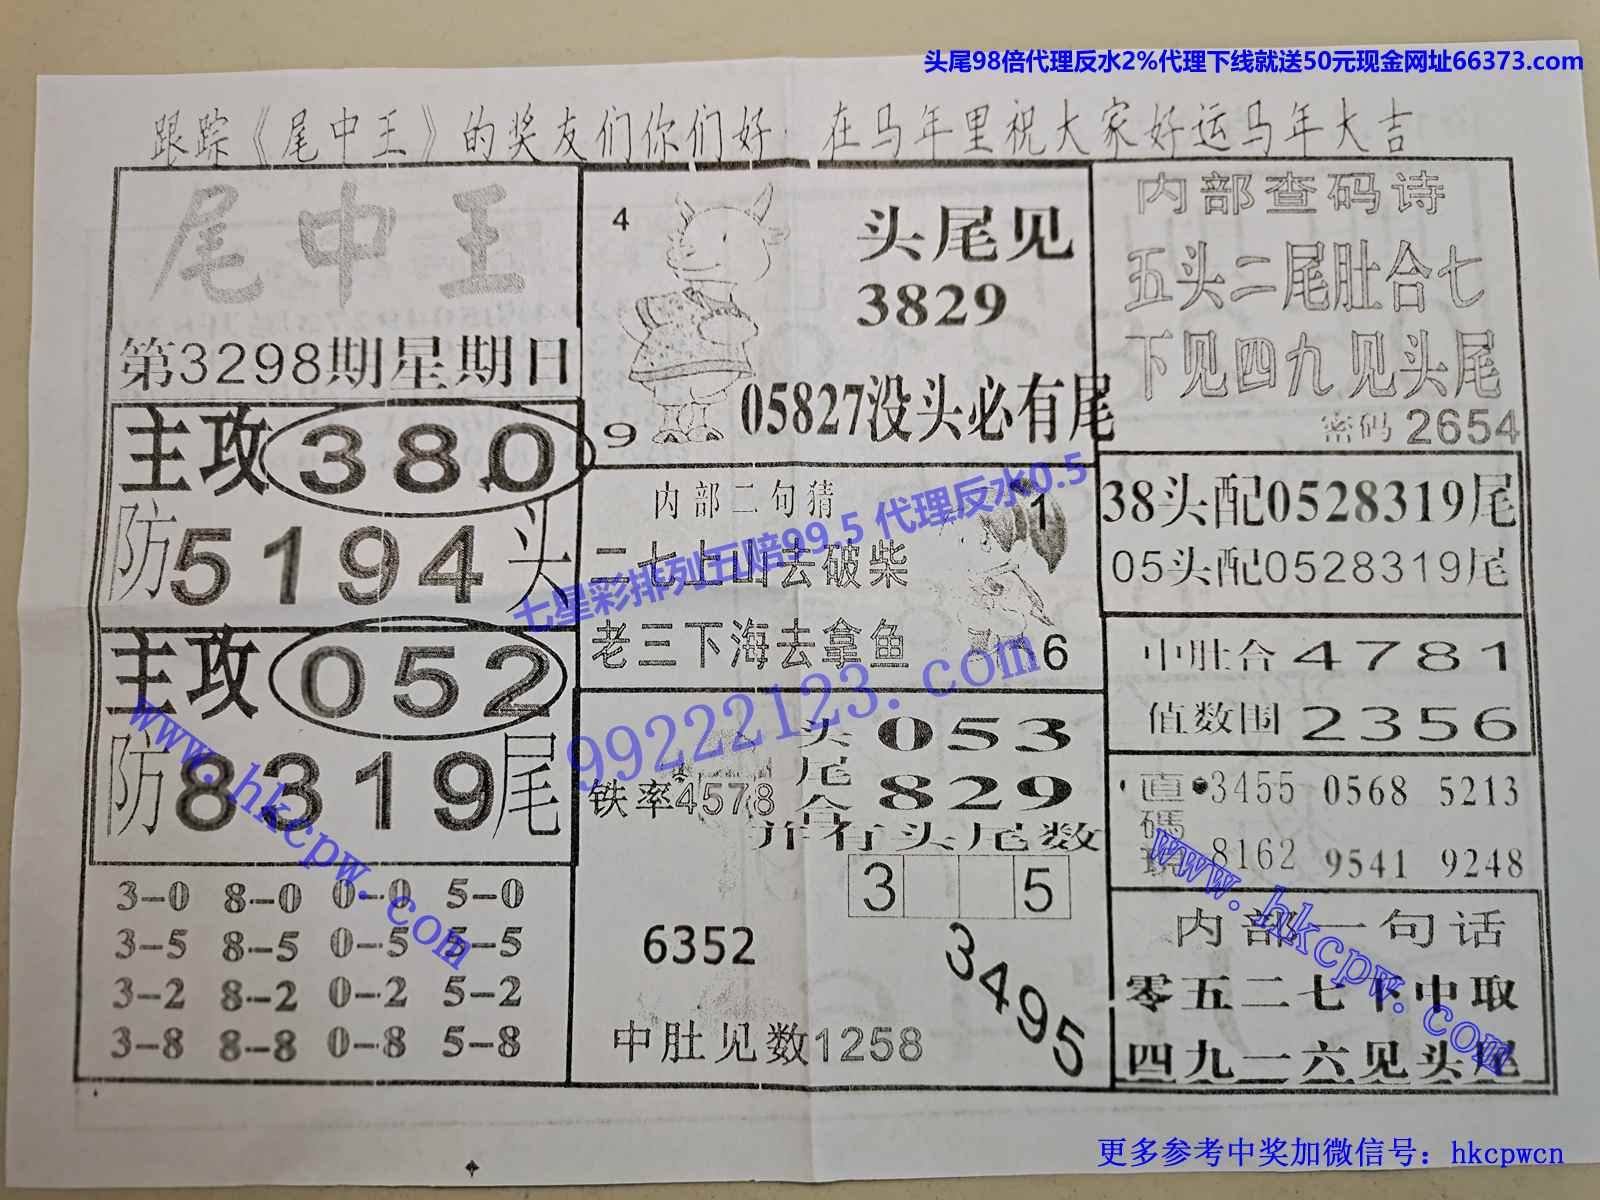 头尾98倍代理反水2%代理下线就送50元现金网址66373.com
跟踪《尾中王》的奖友们你们好 在马年里祝大家好运马年大吉
尾中王
第3298期星期日
主攻380
防5194头
主攻052
防8319尾
3-0 8-0 0-0 5-0
3-5 8-5 0-5 5-5
3-2 8-2 0-2 5-2
3-8 8-8 0-8 5-8
4
头尾见
3829
05827没头必有尾
9
内部二句猜
1
二七上山去破柴
老三下海去拿鱼
16
七星彩排列五赔99.5 代理反水0.5
99222123.com
头尾合
053
829
铁率4578
并有头尾数
3 5
6352
3495
中肚见数1258
内部查码诗
五头二尾肚合七
下见四九见头尾
密码2654
38头配0528319尾
05头配0528319尾
中肚合4781
值数围2356
直碼現
3455 0568 5213
8162 9541 9248
内部一句话
零五二七下中取
四九一六见头尾
www.hkcpw.com
www.hkcpw.com
更多参考中奖加微信号：hkcpwcn